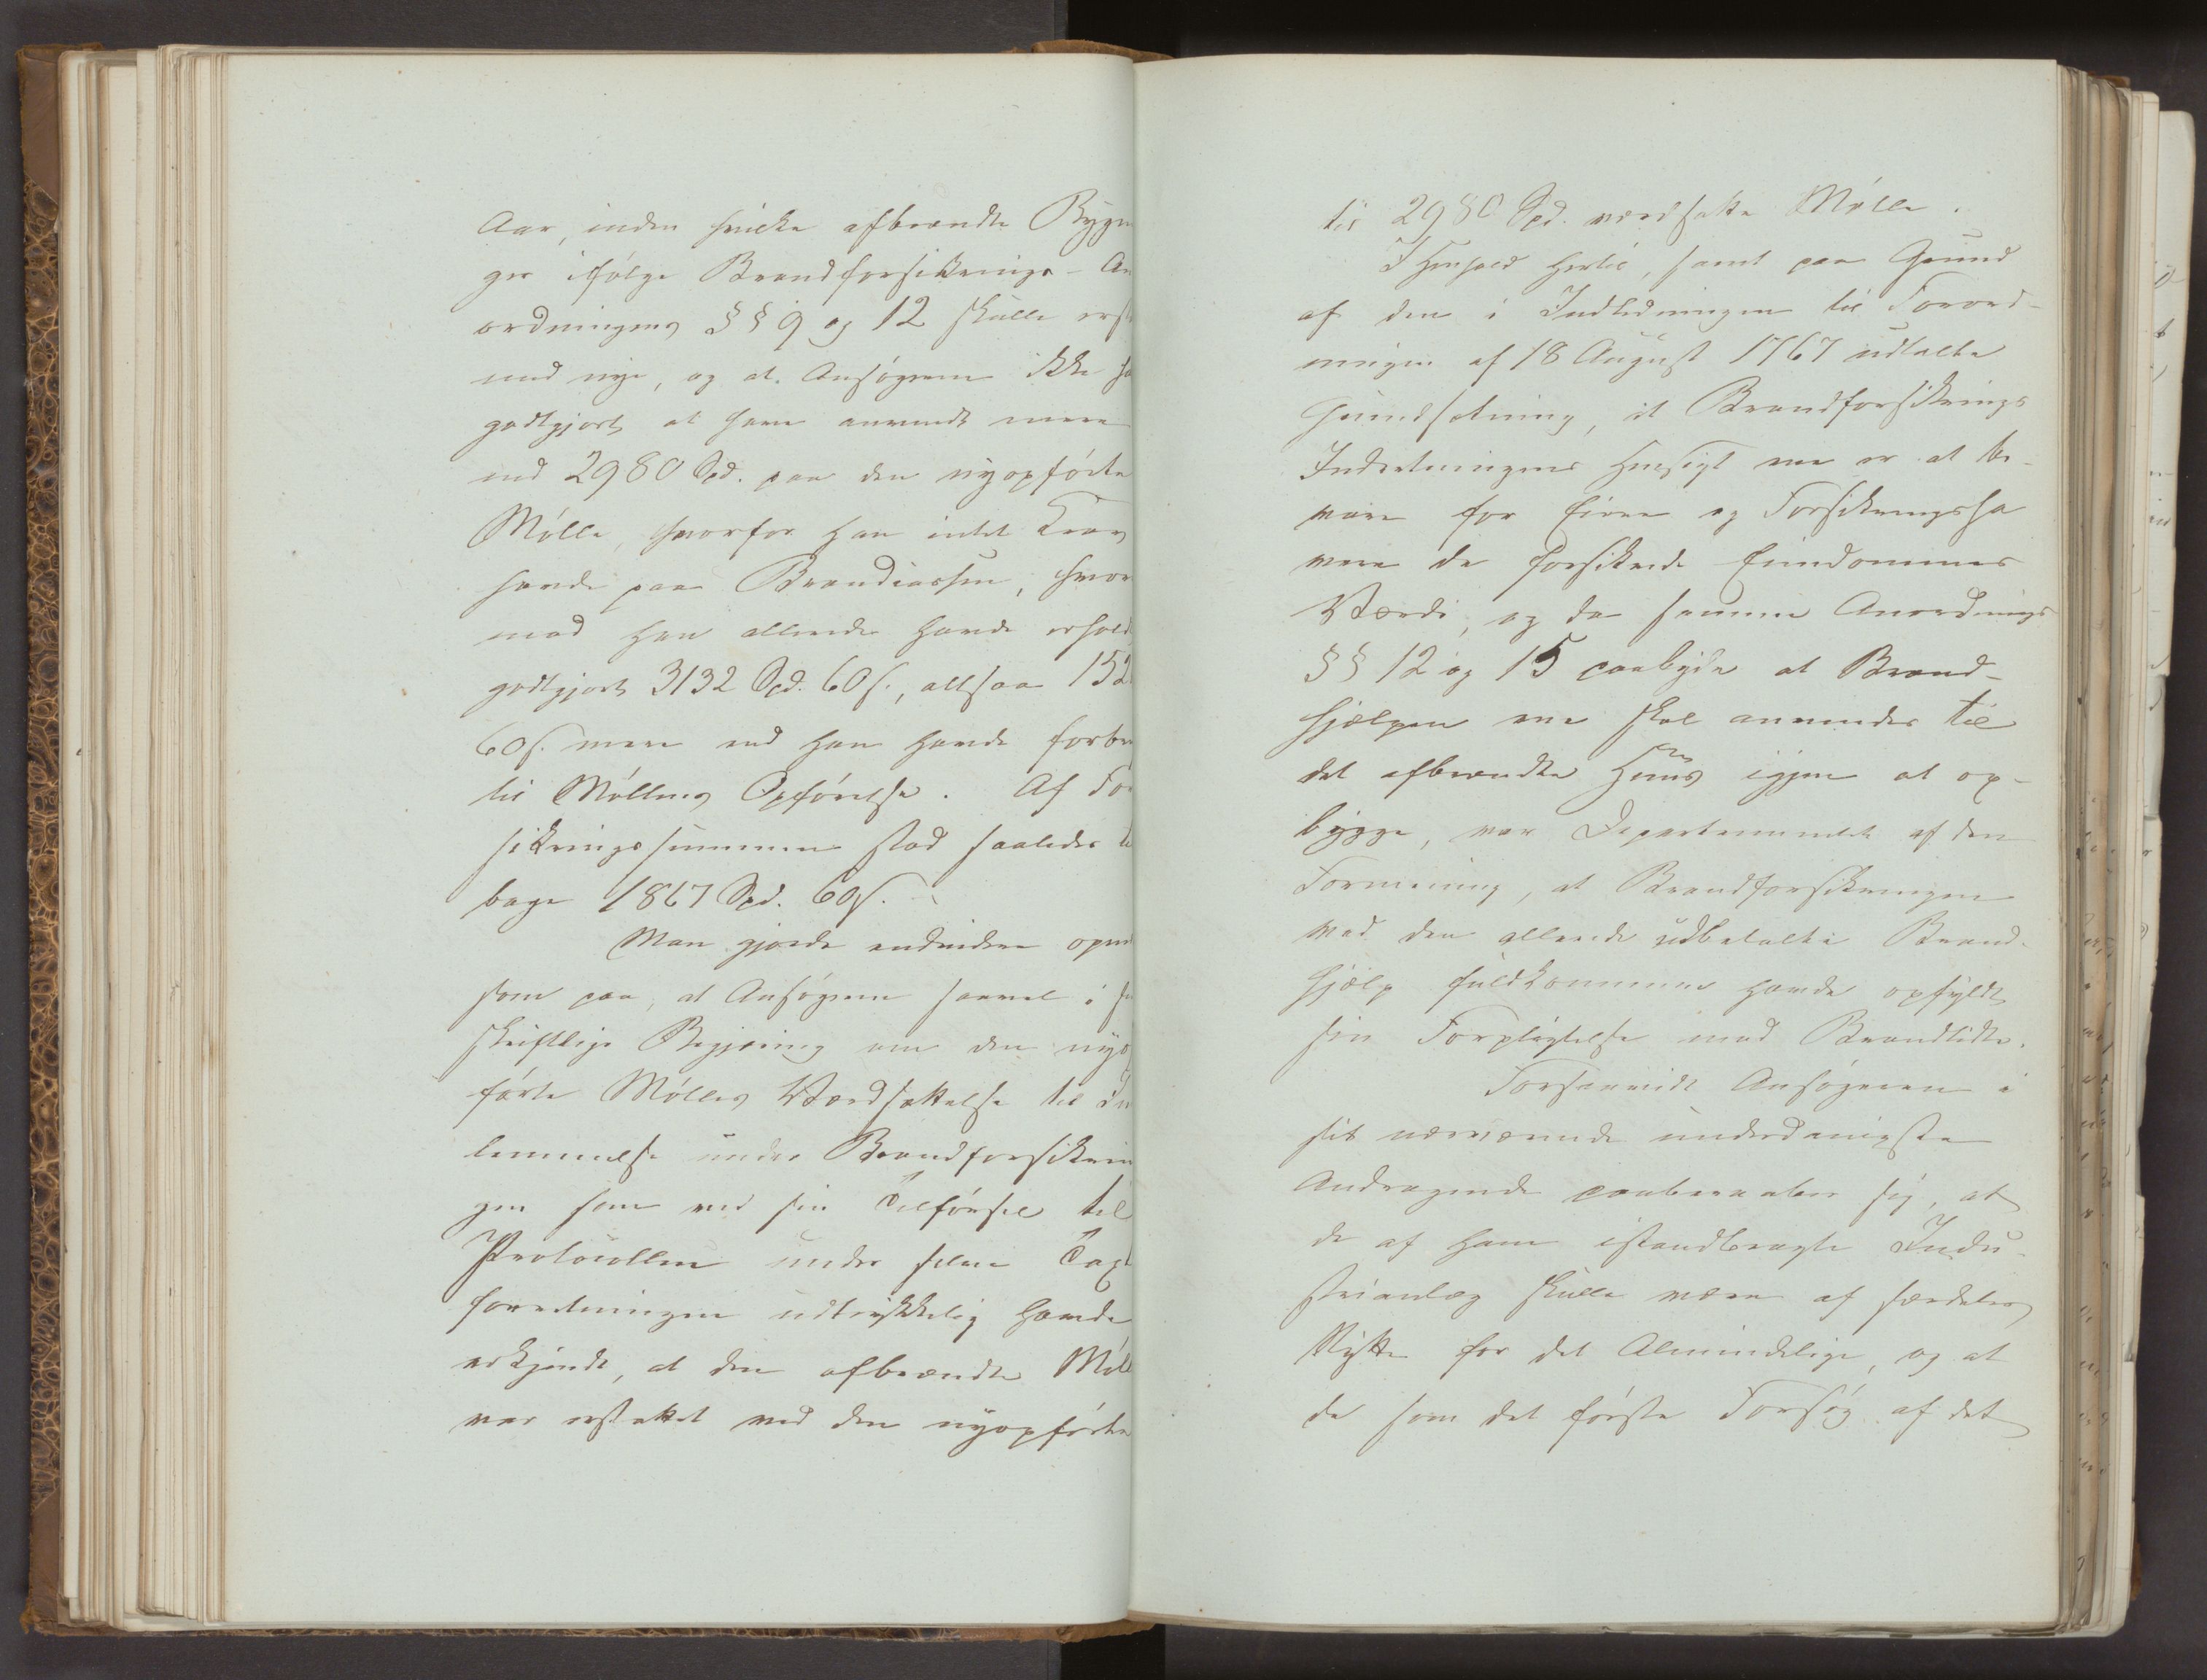 Aar, inden hvilke afbrændte Bygn
ger ifølge Brandforsikrings-An
ordningens §§ 9 og 12 skulle erst
med nye, og at Ansøgeren ikke ha
godtgjort at have anvendt mere
end 2980 Spd. paa den nyopførte
Mølle, hvorfor han intet Krav
havde paa Brandcassen, hvor
mod han allerede havde erhold
godtgjort 3132 Spd. 60 s., altsaa 152
60 s. mere end han havde forbr
til Møllens Opførelse. Af For
sikringssummen stod saaledes ti
bage 1867 Spd. 60 s.
Man gjorde endvidere opmæ
som paa, at Ansøgeren saavel i si
skriftlige Begjæring om den nyo
førte Mølles Værdsættelse til In
lemmelse under Brandforsikrin
gen som ved sin Tilførsel til
Protocollen under selve Taxt
forretningen udtrykkelig havde
erkjendt, at den afbrændte Møll
var erstattet ved den nyopførte
til 2980 Spd. værdsatte Mølle.
I Henhold hertil, samt paa Grund
af den i Indledningen til Forord-
ningen af 18 August 1767 udtalte
Grundsætning, at Brandforsikrings
Indretningens Hensigt var er at be-
vare for Eiere og Forsikringsha
vere de forsikrede Eiendommes
Værdi, og da samme Anordnings
§§ 12 og 15 paabyde at Brand-
hjælpen ene skal anvendes til
det afbrændte Huus igjen at op-
bygge, var Departementet af den
Formening, at Brandforsikringen
ved den allerede udbetalte Brand-
hjælp fuldkommen havde opfyldt
sin Forpligtelse mod Brandlidte.
Forsaavidt Ansøgeren i
sit nærværende underdanigste
Andragende paaberaaber sig, at
de af ham istandbragte Indu-
strianlæg skulle være af særdeles
Nytte for det Almindelige, og at
de som det første Forsøg af det